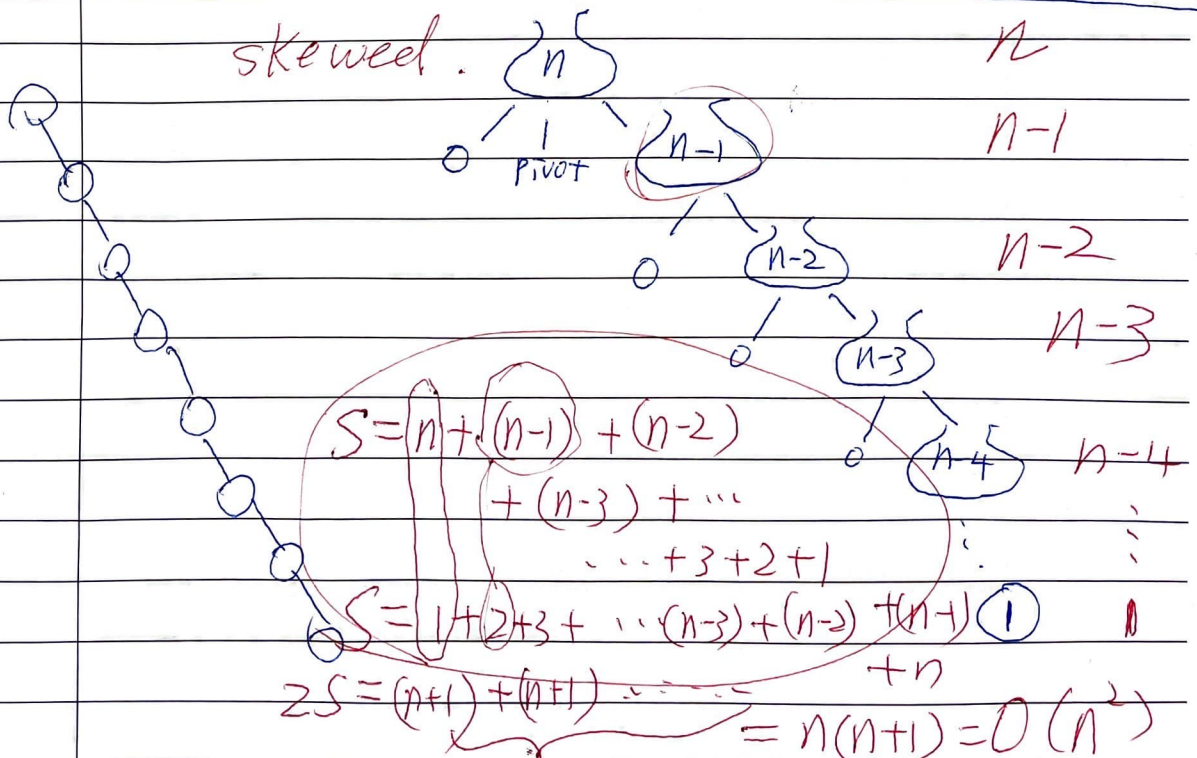 skewed. n n
0 pivot n-1 n-1
0 n-2 n-2
0 n-3 n-3
S=n+(n-1)+(n-2)
0 n-4 n-4
+(n-3)+...
...+3+2+1
S=1+2+3+...(n-3)+(n-2)+(n-1) 1 1
+n
2S=(n+1)+(n+1)......
=n(n+1)=O(n²)